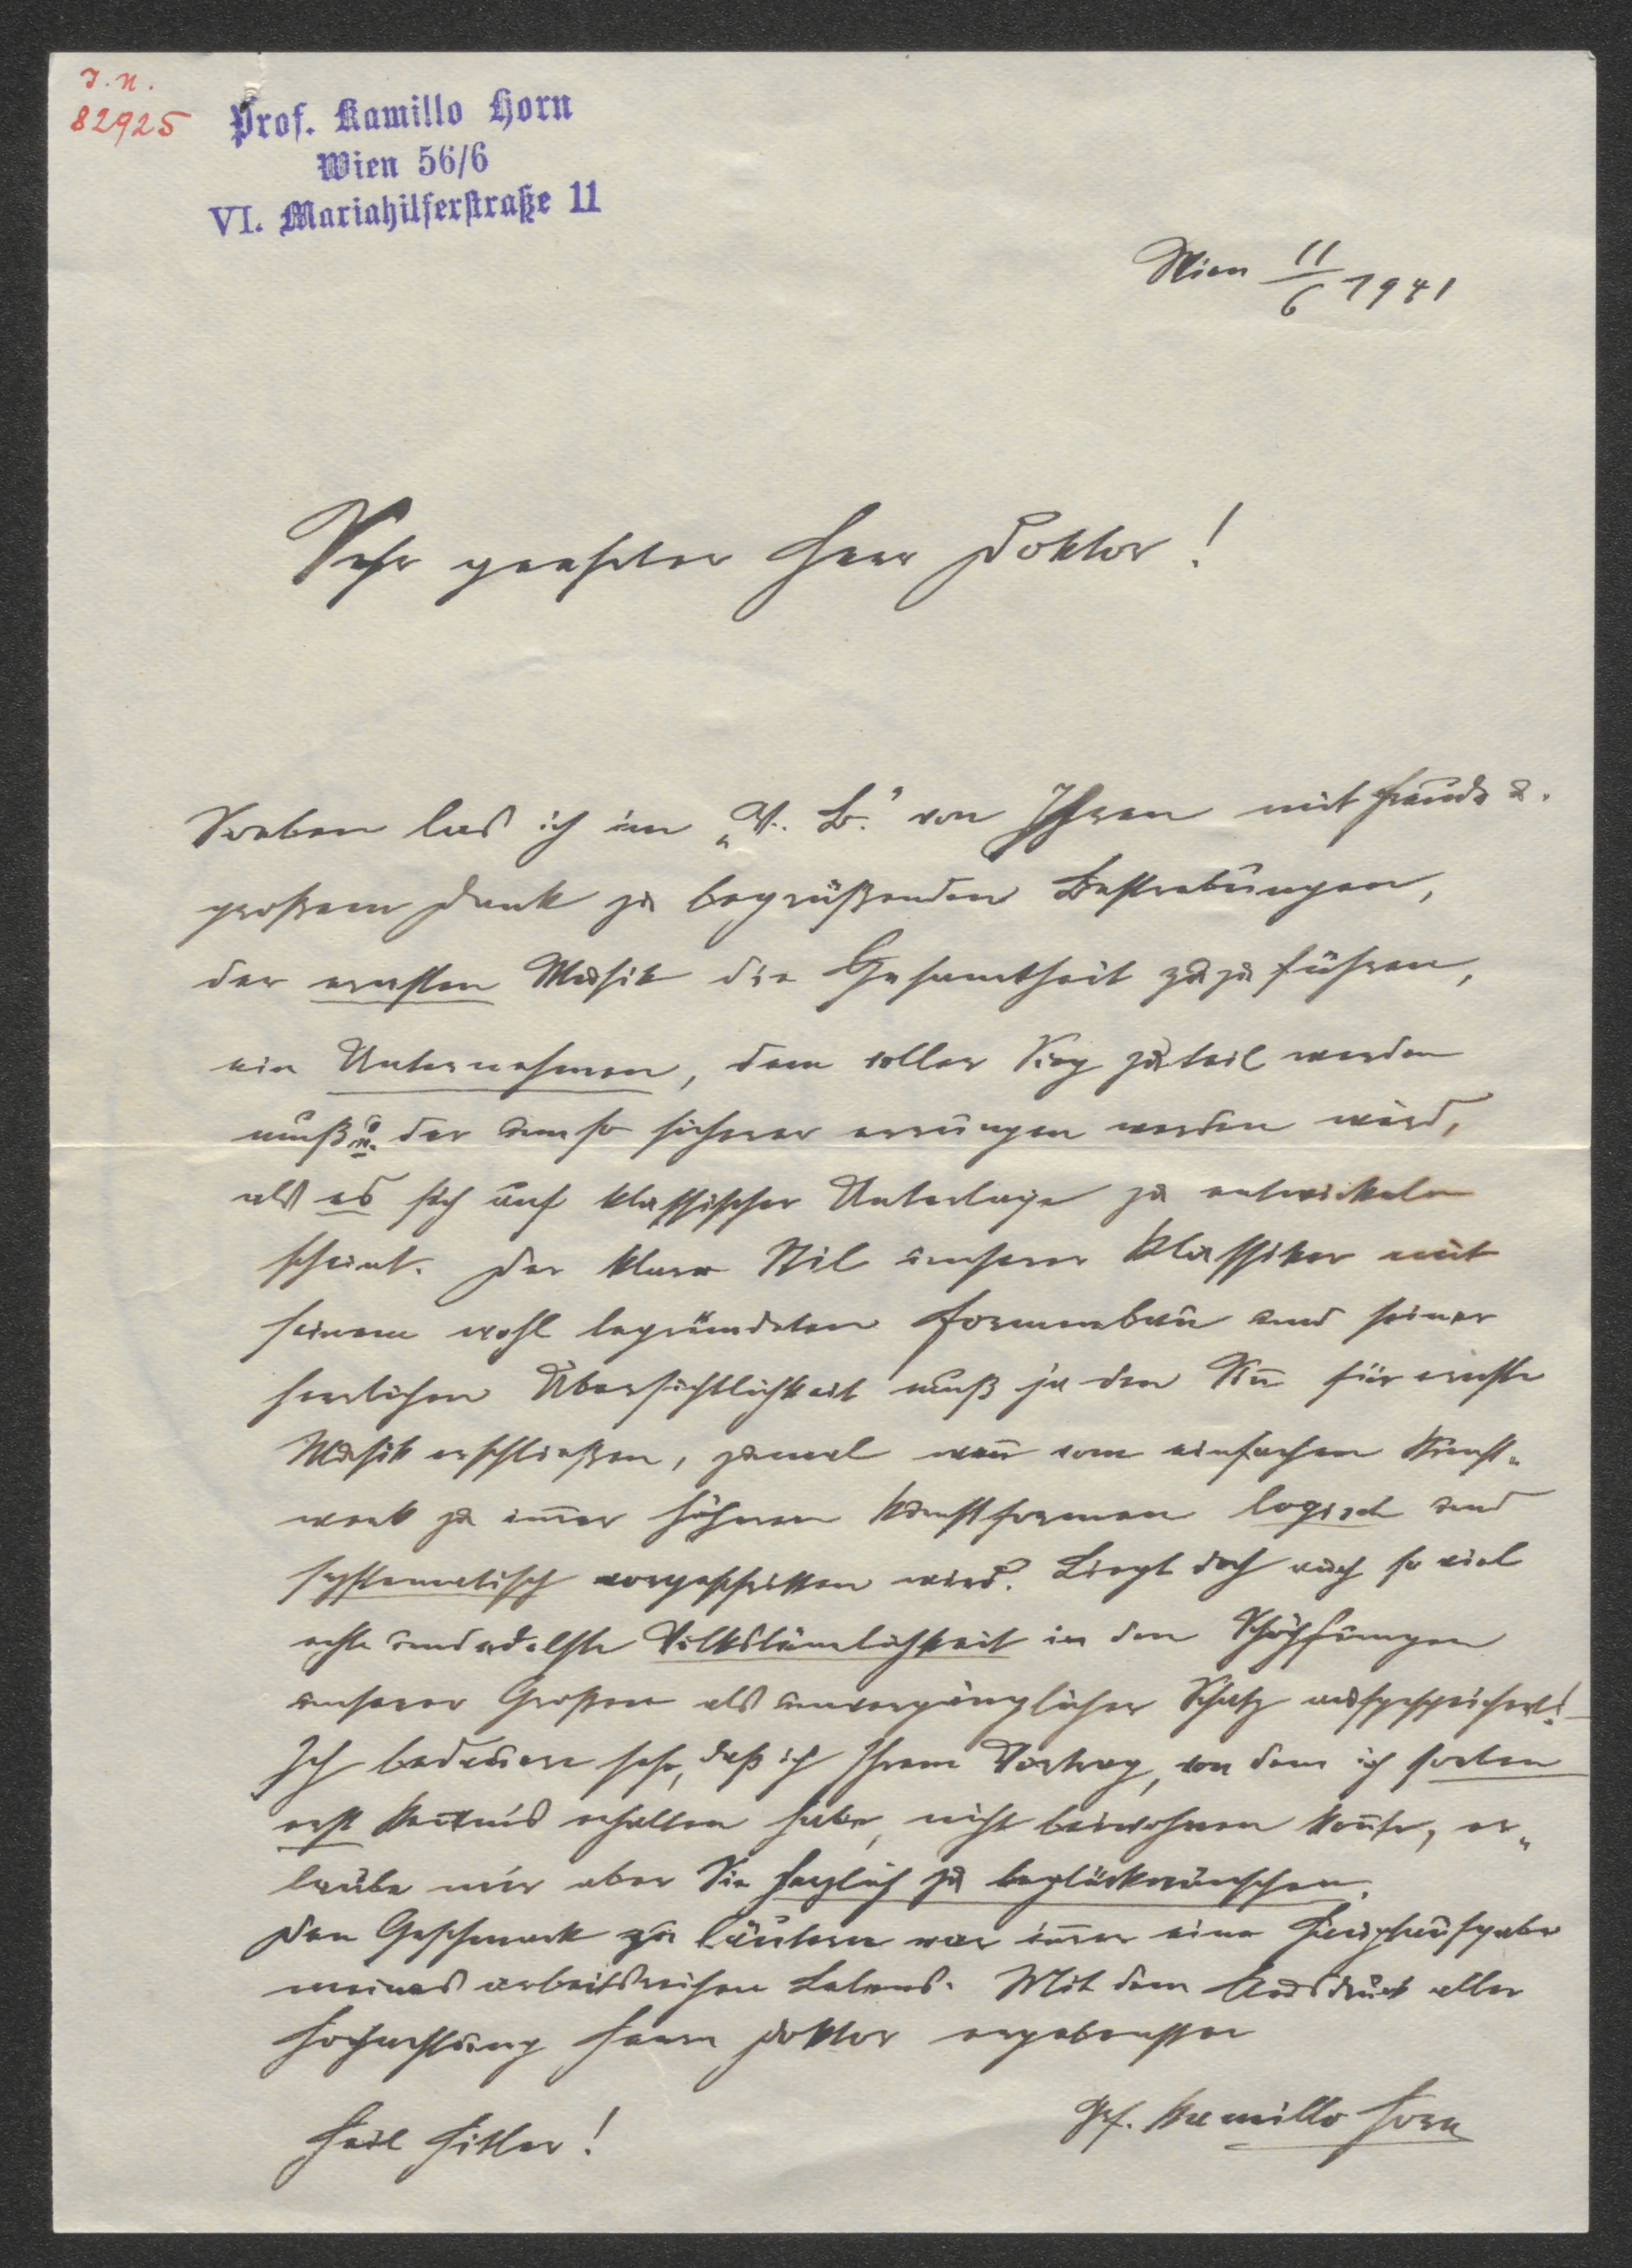 I. N.
82925
Prof. Kamillo Horn
Wien 56/6
VI. Mariahilferstraße 11
Wien 11/6 1941
Sehr geehrter Herr Doktor!
Soeben las ich im „V. B." von Ihren mit Freude u.
großem Dank zu begrüßenden Bestrebungen,
der ernsten Musik die Gesamtheit zuzuführen,
ein Unternehmen, dem voller Sieg zuteil werden
muß u. der umso sicherer errungen werden wird,
als es sich auf klassischer Unterlage zu entwickeln
scheint. Der klare Stil unserer Klassiker mit
seinem wohl begründeten Formenbau und seiner
herrlichen Übersichtlichkeit muß ja den Sin̄ für ernste
Musik erschließen, zumal wen̄ vom einfachen Kunst-
werk zu im̄er höheren Kunstformen logisch und
systematisch vorgeschritten wird. Liegt doch auch so viel
echte und edelste Volkstümlichkeit in den Schöpfungen
unserer Großen als unvergänglicher Schatz aufgespeichert! –
Ich bedauere sehr, daß ich Ihrem Vortrag, von dem ich soeben
erst Ken̄tnis erhalten habe, nicht beiwohnen kon̄te, er-
laube mir aber Sie herzlich zu beglückwünschen.
Den Geschmack zu läutern war im̄er eine Hauptaufgabe
meines arbeitsreichen Lebens. Mit dem Ausdruck aller
Hochachtung Herrn Doktor ergebenster
Heil Hitler!
Prf. Kamillo Horn